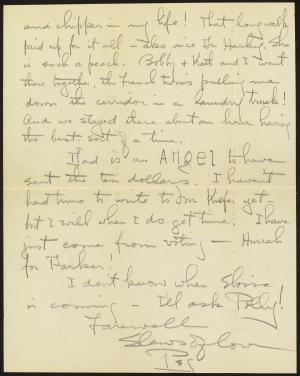 and chipper in my life! That long walk
paid up for it all – also nice Dr. Harley. She
is such a peach. Bobby + Kath and I went
there together, the French twins pulling me
down the corridor in a laundry truck!
And we stayed there about an hour having
the best sort of a time.
Dad is an ANGEL to have
sent the ten dollars. I haven't
had time to write to Dr. yet –
but I will when I do get time. I have
just come from voting – Hurrah
for Parker!
I don't know when Eloise
is coming – I'll ask Polly!
Farewell
Slews of love
Peg